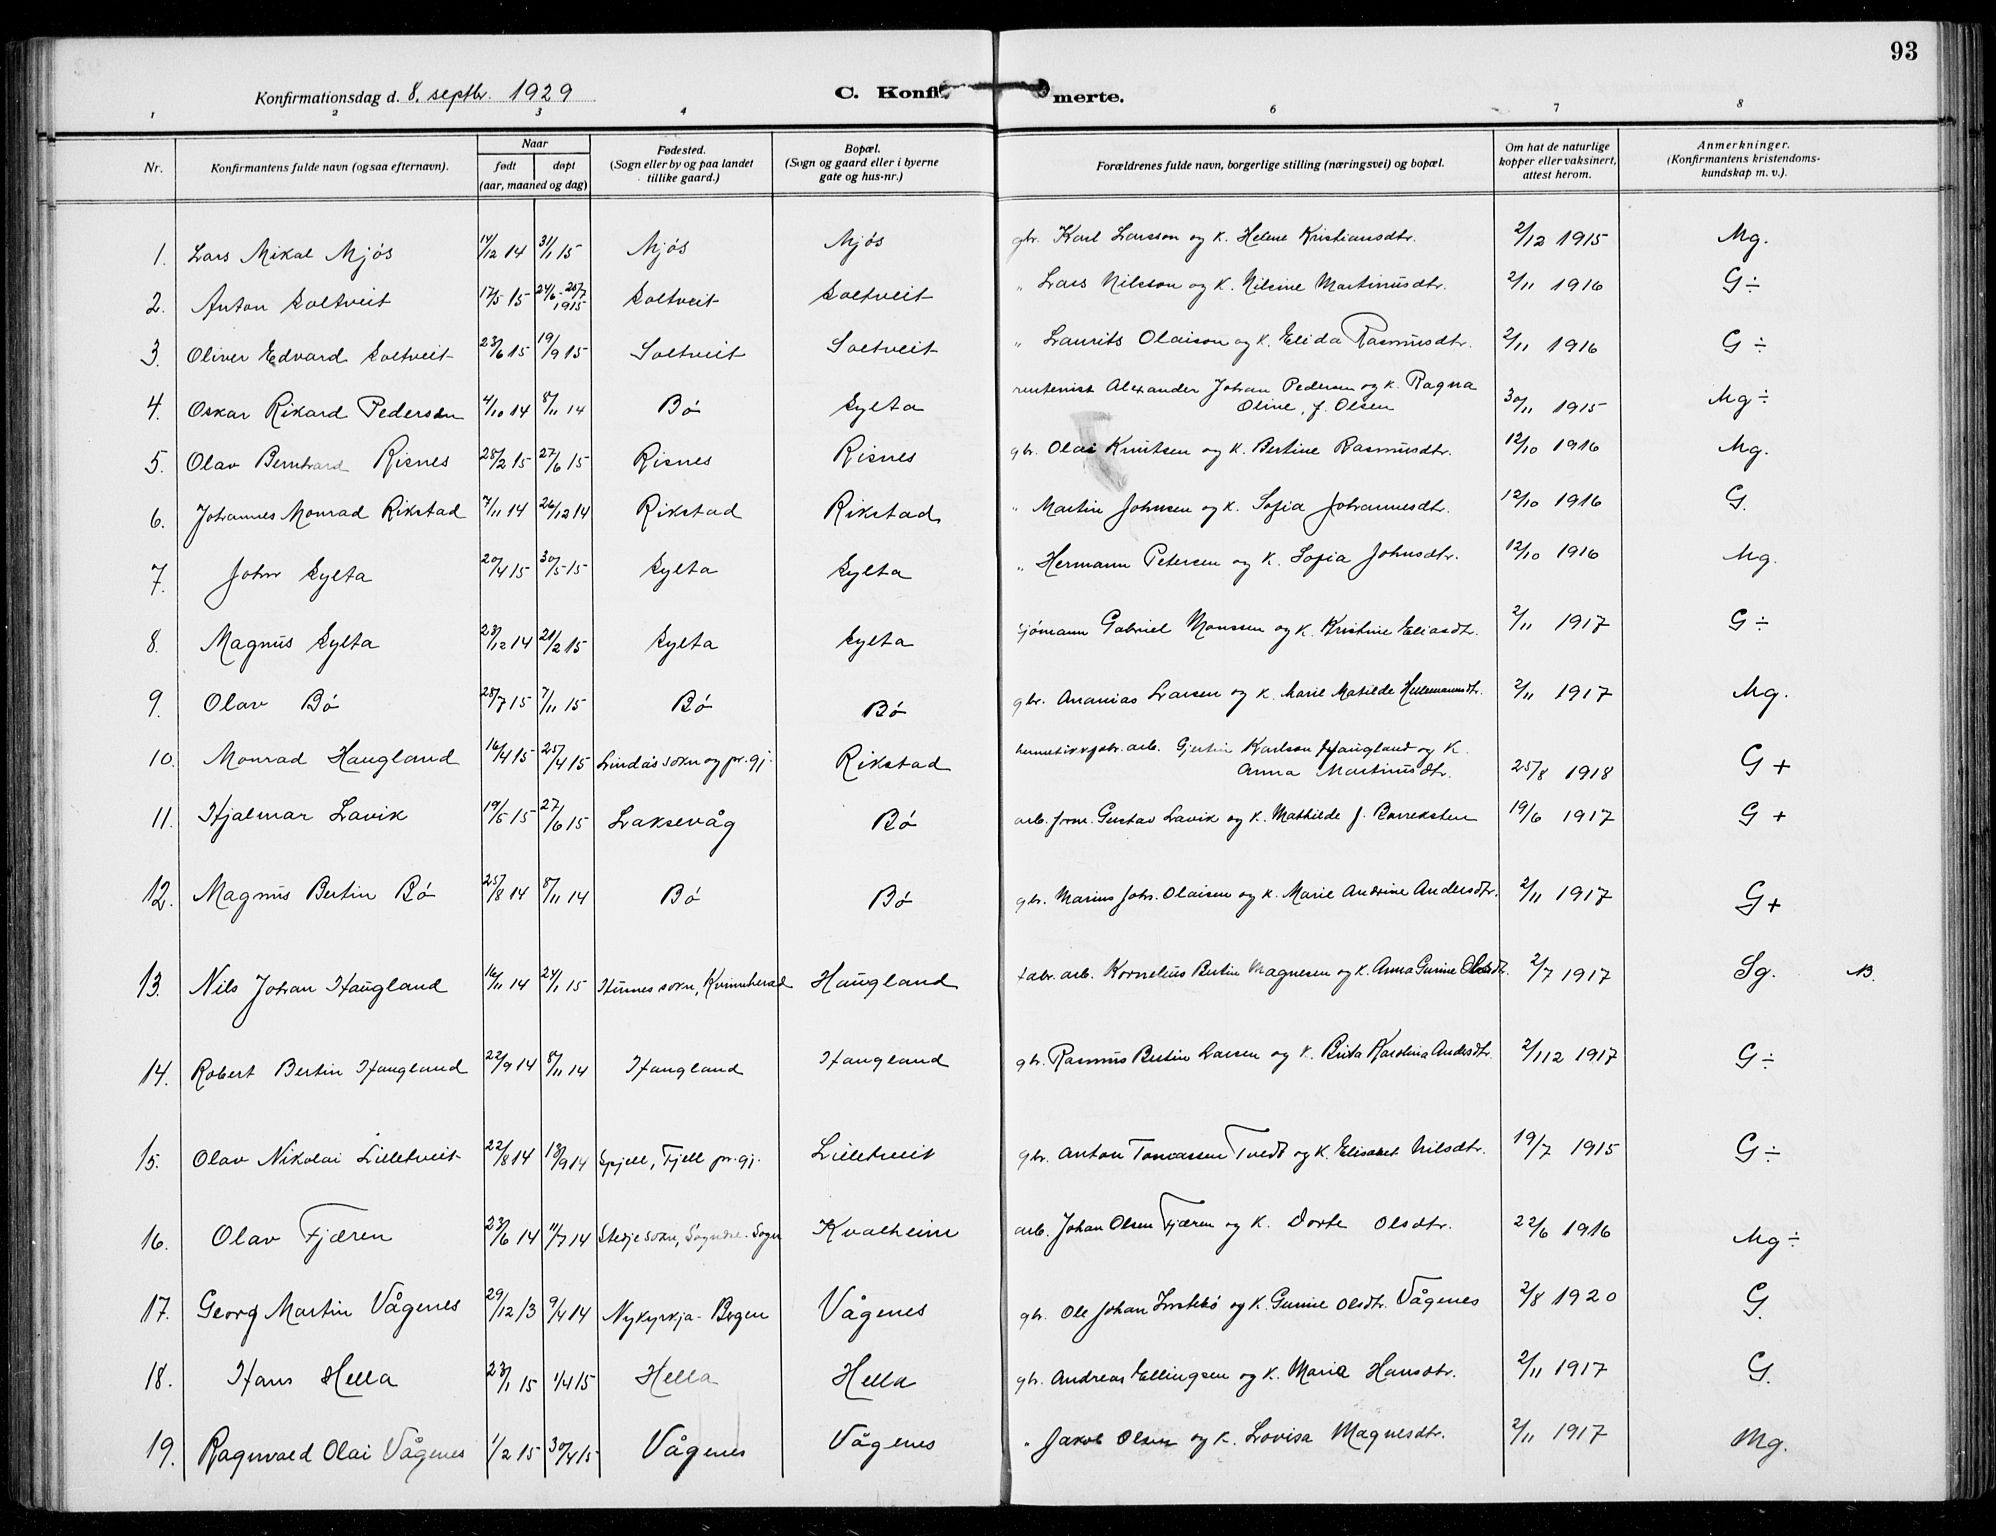 93
Konfirmationsdag d. 8. septbr. 1929
C. Konfir merte.
1 2 3 4 6 7 8
Nr. Konfirmantens fulde navn (ogsaa efternavn). Naar født døpt (aar, maaned og dag) Fødested. (Sogn eller by og paa landet tillike gaard.) Bopæl. (Sogn og gaard eller i byerne gate og hus-nr.) Forældrenes fulde navn, borgerlige stilling (næringsvei) og bopæl. Om hat de naturlige kopper eller vaksinert, attest herom. Anmerkninger. (Konfirmantens kristendoms-kundskap m. v.).
1. Lars Mikal Mjøs 14/12 14 31/1 15 Mjøs Mjøs gbr. Karl Larsson og K. Helene Kristiansdtr. 2/12 1915 Mg.
2. Anton Soltveit 17/5 15 24/6-25/7 1915 Soltveit Soltveit " Lars Nilsson og K. Nilsine Martinusdtr. 2/11 1916 G ÷
3. Oliver Edvard Soltveit 23/6 15 19/9 15 Soltveit Soltveit " Laurits Olaison og K. Elida Rasmusdtr. 2/11 1916 G ÷
4. Oskar Rikard Pedersen 4/10 14 8/11 14 Bø Sylta rentenist Alexander Johan Pedersen og K. Ragna Oline, f. Olsen 30/11 1915 Mg ÷
5. Olav Bernhard Risnes 28/2 15 27/6 15 Risnes Risnes gbr. Olai Knutsen og K. Bertine Rasmusdtr. 12/10 1916 Mg.
6. Johannes Monrad Rikstad 7/11 14 26/12 14 Rikstad Rikstad " Martin Johnsen og K. Sofia Johannesdtr. 12/10 1916 G.
7. John Sylta 20/4 15 30/5 15 Sylta Sylta " Hermann Petersen og K. Sofia Johnsdtr. 12/10 1916 Mg.
8. Magnus Sylta 23/12 14 21/2 15 Sylta Sylta Sjømann Gabriel Monssen og K. Kristine Eliasdtr. 2/11 1917 G ÷
9. Olav Bø 28/7 15 7/11 15 Bø Bø gbr. Ananias Larsen og K. Marie Matilde Hellemannsdtr. 2/11 1917 Mg.
10. Monrad Haugland 16/4 15 25/4 15 Lindås sokn og pr.gj. Rikstad hermetikkfabr. arb. Gjertin Karlson Haugland og K. Anna Martinusdtr. 25/8 1918 G +
11. Hjalmar Lavik 19/5 15 27/6 15 Laksevåg Bø arb. form. Gustav Lavik og K. Mathilde f. Barreksten 19/6 1917 G +
12. Magnus Bertin Bø 25/8 14 8/11 14 Bø Bø gbr. Marius Johs. Olaisen og K. Marie Andrine Andersdtr. 2/11 1917 G +
13. Nils Johan Haugland 16/11 14 24/1 15 Husnes sokn, Kvinnherad Haugland fabr. arb. Kornelius Bertin Magnesen og K. Anna Gurine Olsdtr. 2/7 1917 Sg. N.
14. Robert Bertin Haugland 22/9 14 8/11 14 Haugland Haugland gbr. Rasmus Bertin Larsen og K. Brita Karolina Andersdtr. 2/112 1917 G ÷
15. Olav Nikolai Lilletveit 22/8 14 13/9 14 Spjell, Fjell pr.gj. Lilletveit gbr. Anton Tomassen Tvedt og K. Elisabet Nilsdtr. 19/7 1915 G ÷
16. Olav Fjæren 23/6 14 11/7 14 Stedje sokn, Sogndal. Sogn Kvalheim arb. Johan Olsen Fjæren og K. Dorte Olsdtr. 22/6 1916 Mg ÷
17. Georg Martin Vågenes 29/12 13 9/4 14 Nykyrkja - Bergen Vågenes gbr. Ole Johan og K. Gurine Olsdtr. Vågenes 2/8 1920 G.
18. Hans Hella 23/1 15 1/4 15 Hella Hella gbr. Andreas Ellingsen og K. Maria Hansdtr. 2/11 1917 G.
19. Ragnvald Olai Vågenes 1/2 15 30/4 15 Vågenes Vågenes " Jakob Olsen og K. Lovisa Magnesdtr. 2/11 1917 Mg.